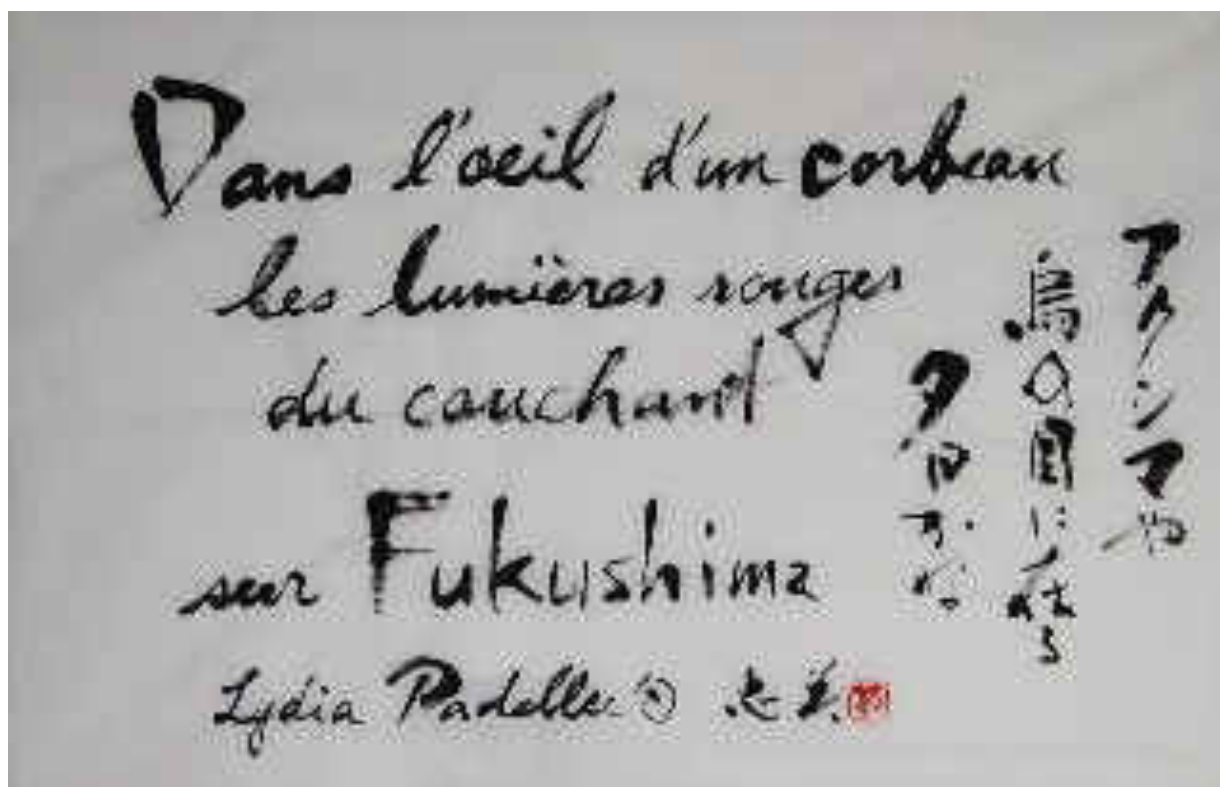 Dans l'oeil d'un corbeau
les lumières rouges
du couchant
sur Fukushima
Lydia Padellec
フクシマや
烏の目に在る
夕日かな